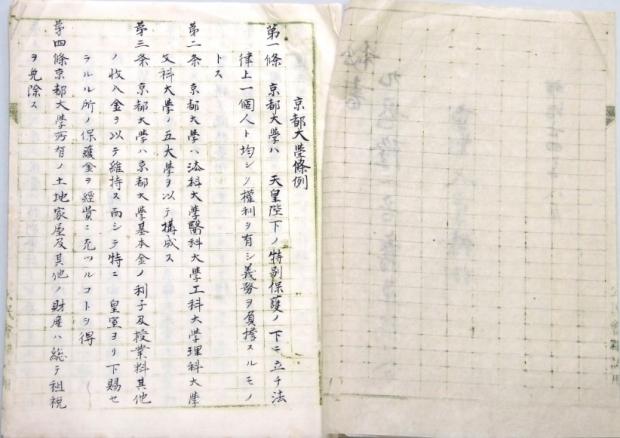 京都大學條例
第一條 京都大學ハ 天皇陛下ノ特別保護ノ下ニ立チ法
律上一個人ト均シク權利ヲ有シ義務ヲ負擔スルモノ
トス
第二条 京都大學ハ法科大學醫科大學工科大學理科大學
文科大學ノ五大學ヲ以テ構成ス
第三条 京都大學ハ京都大學基本金ノ利子及授業料其他
ノ收入金ヲ以テ維持ス而シテ特ニ 皇室ヨリ下賜セ
ラルル所ノ保護金ヲ經費ニ充ツルコトヲ得
第四條京都大學所有ノ土地家屋及其他ノ財産ハ總テ租税
ヲ免除ス